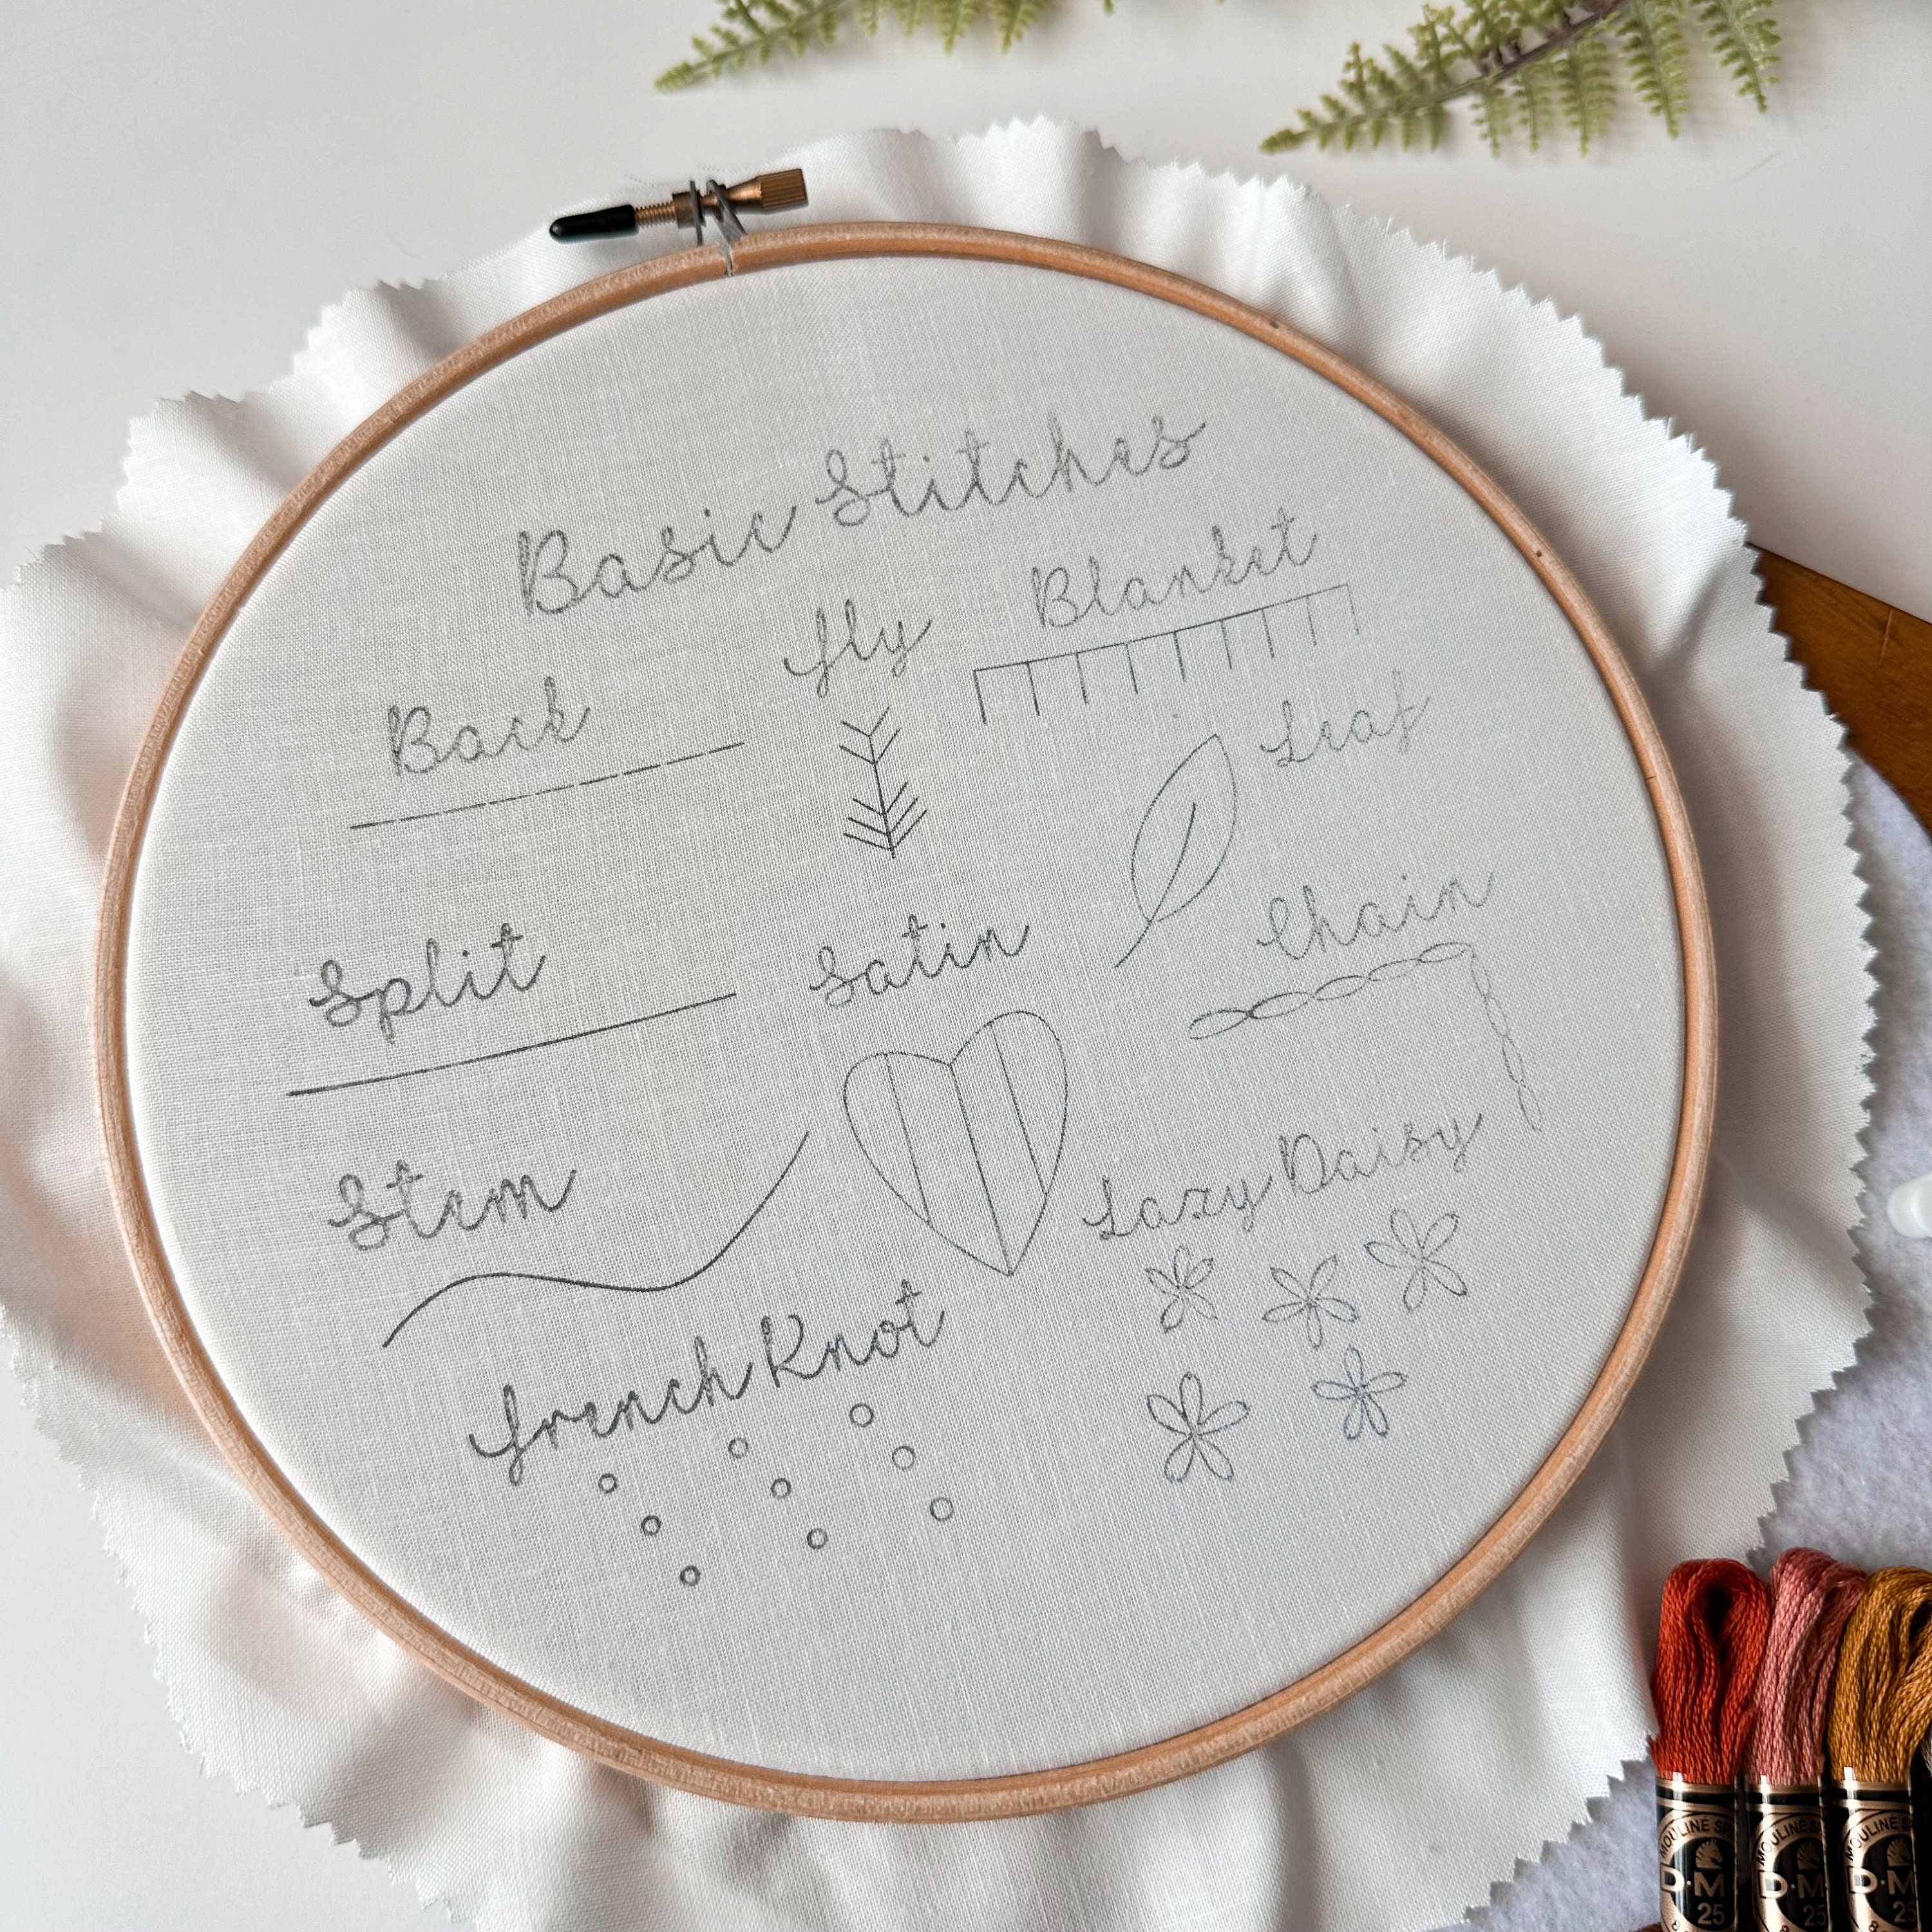 Basic Stitches
Back
fly
Blanket
Leaf
Split
Satin
Chain
Stem
Lazy Daisy
french Knot
D·M
25
D·M
25
D·M
25